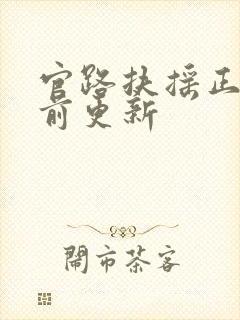 官路扶摇正
前更新
闹市茶客